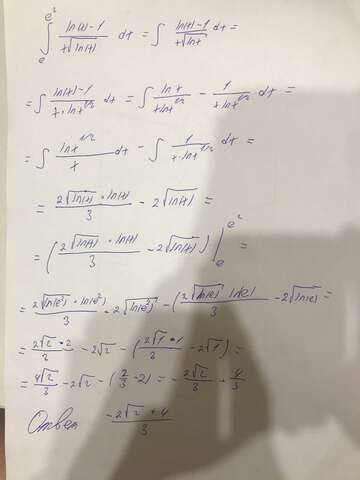 ∫_e^{e²} (ln(x)-1)/(x√ln(x)) dx = ∫ (ln(x)-1)/(x√ln x) dx =
= ∫ (ln(x)-1)/(x·ln x^{1/2}) dx = ∫ (ln x)/(x ln x^{1/2}) - 1/(x ln x^{1/2}) dx =
= ∫ (ln x^{1/2})/x dx - ∫ 1/(x·ln x^{1/2}) dx =
= (2√ln(x) · ln(x))/3 - 2√ln(x) =
= ((2√ln(x) · ln(x))/3 - 2√ln(x)) |_e^{e²} =
= (2√ln(e²) · ln(e²))/3 - 2√ln(e²) - ((2√ln(e) · ln(e))/3 - 2√ln(e)) =
= (2√2 · 2)/3 - 2√2 - ((2√1 · 1)/3 - 2√1) =
= (4√2)/3 - 2√2 - (2/3 - 2) = - (2√2)/3 + 4/3
Ответ (-2√2 + 4)/3